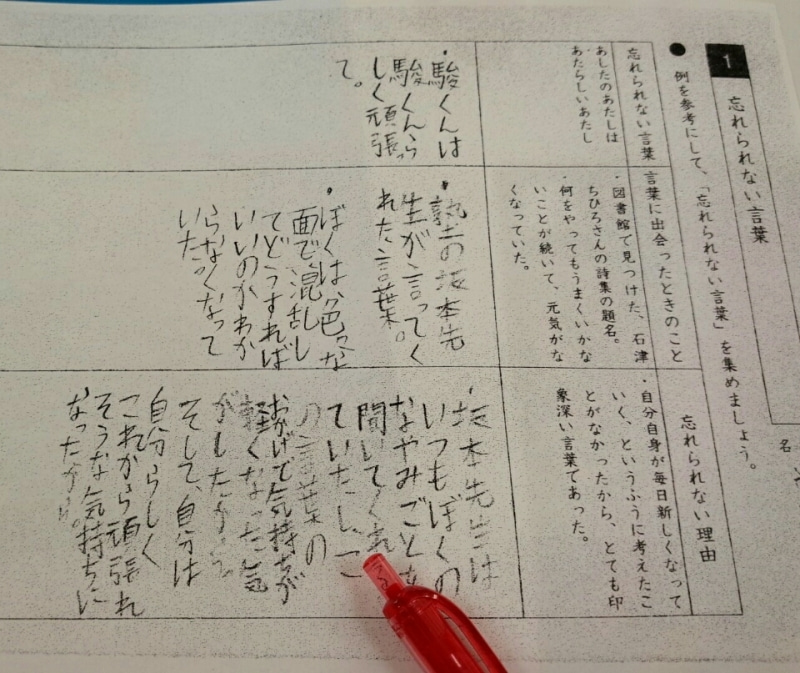 名
1 忘れられない言葉
● 例を参考にして、「忘れられない言葉」を集めましょう。
忘れられない言葉
言葉に出会ったときのこと
忘れられない理由
あしたのあたしは
あたらしいあたし
・図書館で見つけた、石津
ちひろさんの詩集の題名。
・何をやってもうまくいかな
いことが続いて、元気がな
くなっていた。
・自分自身が毎日新しくなって
いく、というふうに考えたこ
とがなかったから、とても印
象深い言葉であった。
・駿くんは
駿くんら
しく頑張っ
て。
・塾の坂本先
生が言ってく
れた言葉。
・ぼくは色々な
面で混乱し
てどうすれば
いいのかわか
らなくなって
いた。
・坂本先生は
いつもぼくの
なやみごとを
聞いてくれ
ていたし、こ
の言葉の
おかげで気持ちが
軽くなった気
がしたから。
そして、自分は
自分らしく
これから頑張れ
そうな気持ちに
なったから。